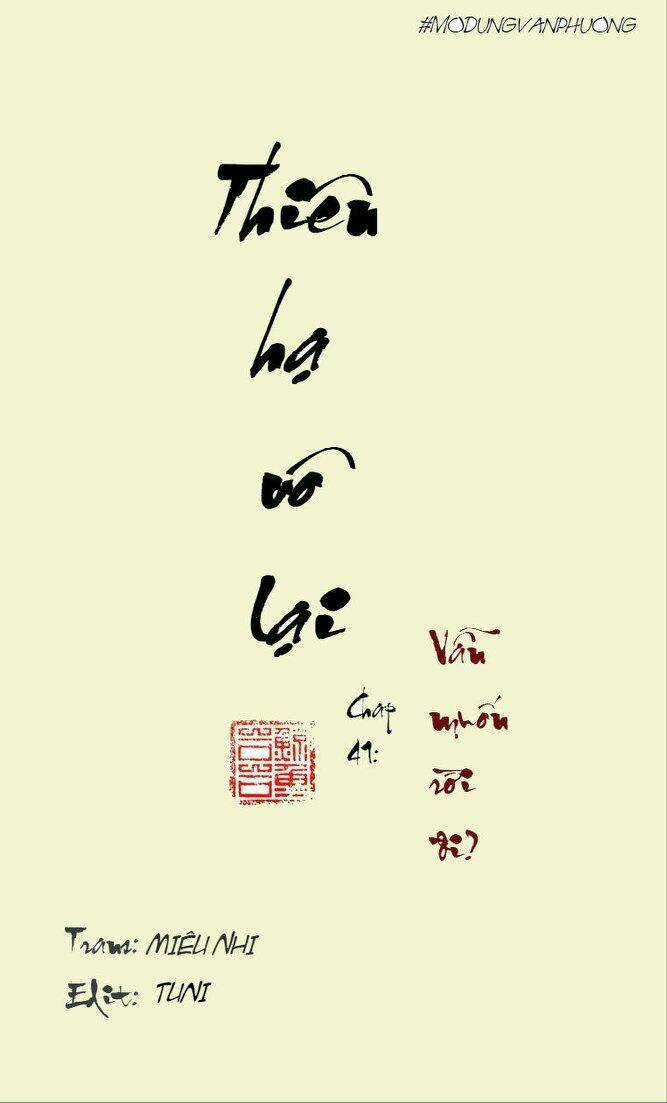 #MODUNGVANPHUONG
Thiên
hạ
vô
lại
Chap
41:
Vẫn
muốn
rời
đi?
Trans: MIÊU NHI
Edit: TUNI